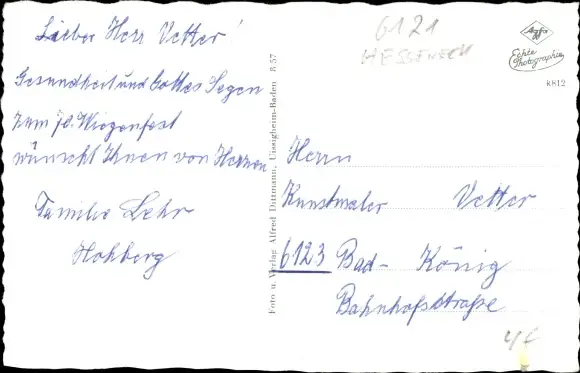 Lieber Herr Vetter!
Gesundheit und Gottes Segen
zum 70. Wiegenfest
wünscht Ihnen von Herzen
Familie Lehr
Hohberg
Foto u. Verlag Alfred Dittmann, Uissigheim-Baden 8 57
6121
HESSENECK
Agfa
Echte
Photographie
K812
Herrn
Kunstmaler Vetter
6123 Bad-König
Bahnhofsstraße